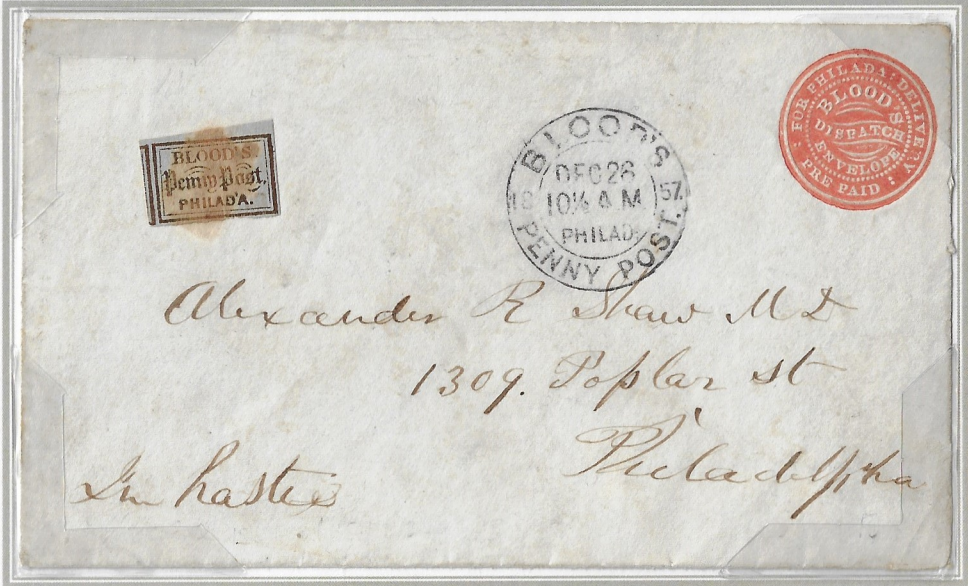 BLOOD'S
Penny Post.
PHILAD'A.
BLOOD'S
DEC 26
18 57.
10¼ A.M
PHILADA
PENNY POST.
FOR PHILADA: DELIVERY
BLOOD'S
DISPATCH
ENVELOPE
PRE PAID
Alexander R Shaw MD
1309. Poplar st
Philadelpha
In haste